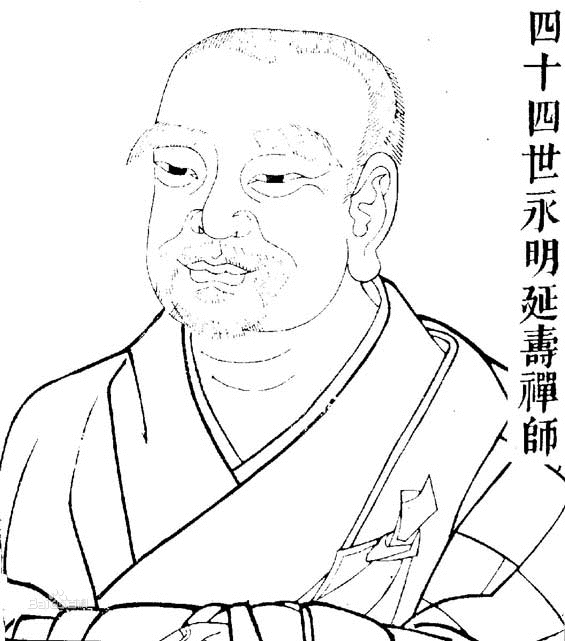 四十四世永明延壽禪師
Baidu百科